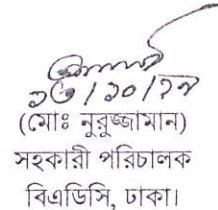 ১৩/১০/২৭
(মোঃ নুরুজ্জামান)
সহকারী পরিচালক
বিএডিসি, ঢাকা।